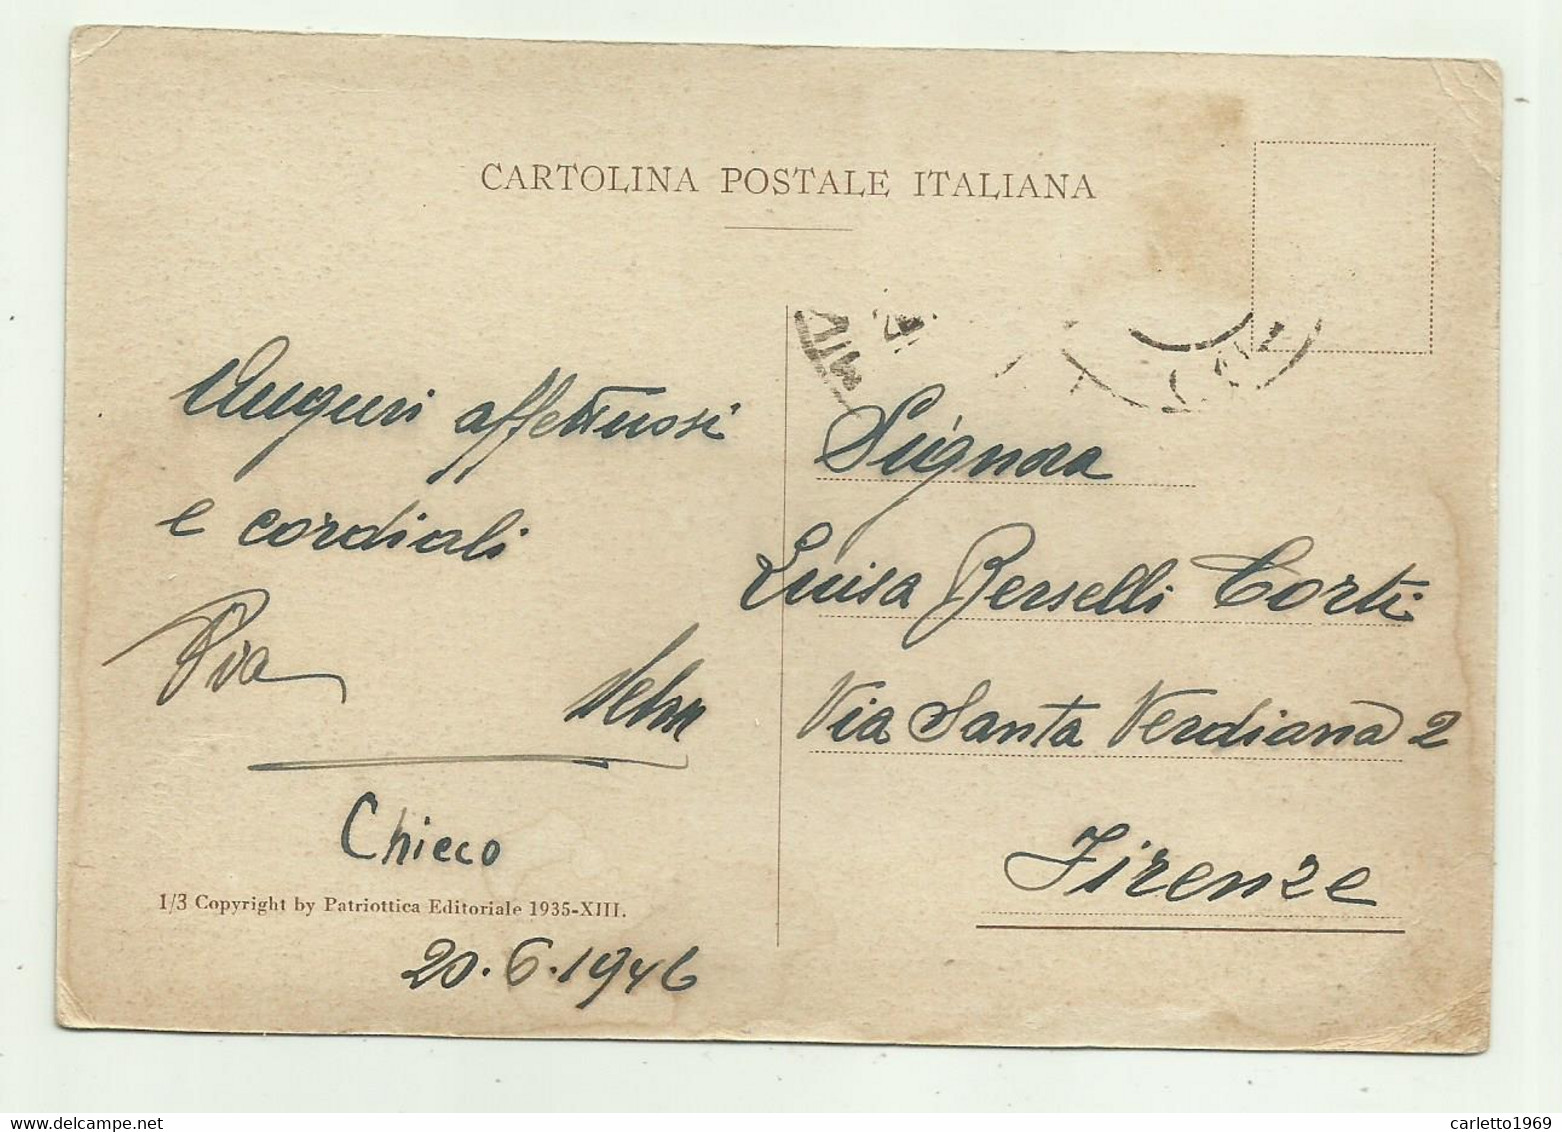 CARTOLINA POSTALE ITALIANA
Auguri affettuosi
e cordiali
Pia
Chieco
1/3 Copyright by Patriottica Editoriale 1935-XIII.
20.6.1946
Signora
Luisa Berselli Corti
Via Santa Verdiana 2
Firenze
carletto1969